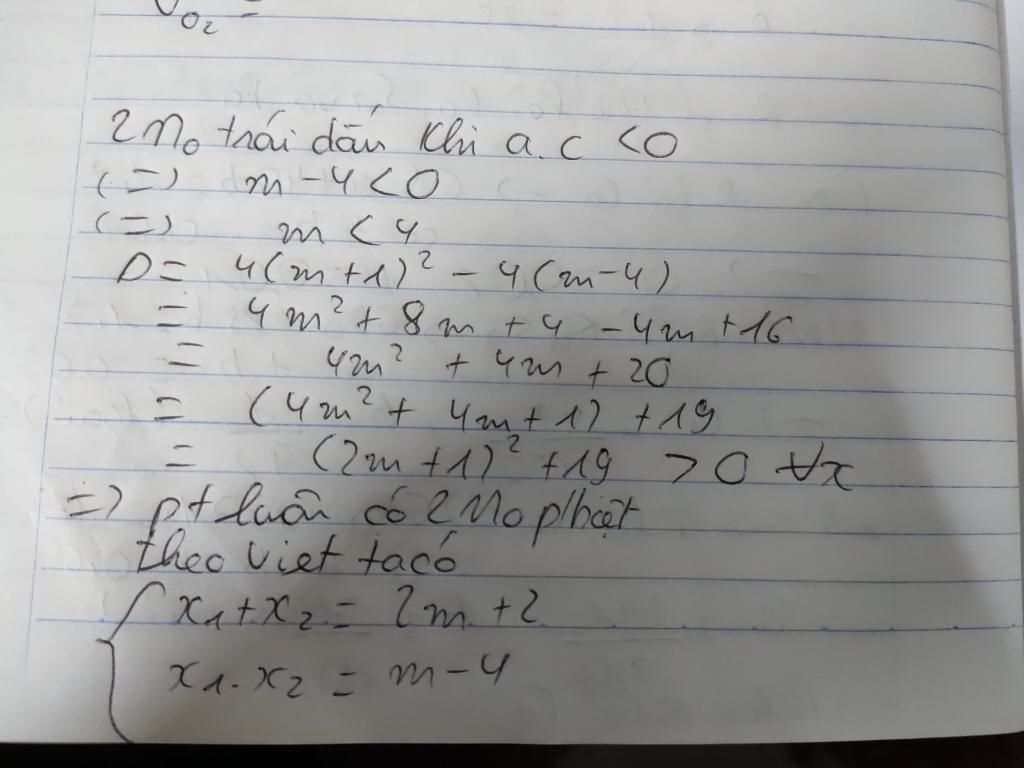 V O2 =
2 no trái dấu khi a.c < 0
(=) m - 4 < 0
(=) m < 4
D = 4(m+1)² - 4(m-4)
= 4m² + 8m + 4 - 4m + 16
= 4m² + 4m + 20
= (4m² + 4m + 1) + 19
= (2m+1)² + 19 > 0 ∀x
=> pt luôn có 2 no pbiệt
theo viet ta có
{ x1 + x2 = 2m + 2
x1 . x2 = m - 4